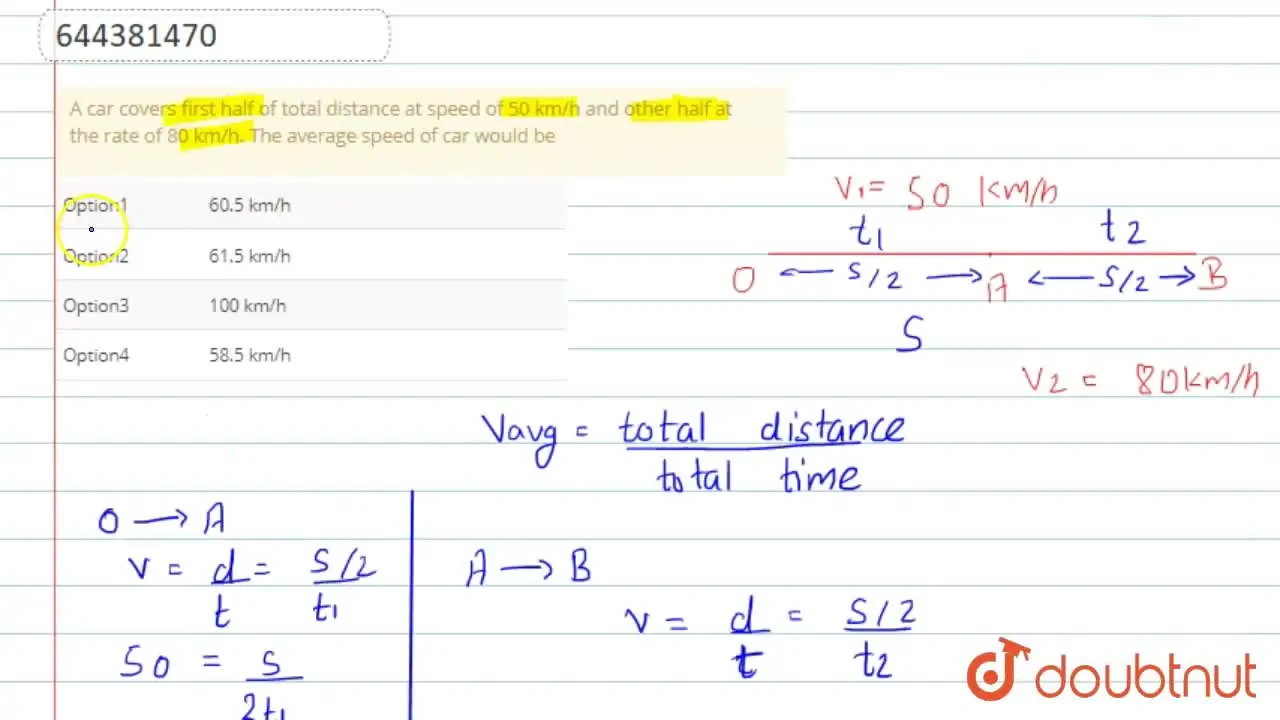 644381470
A car covers first half of total distance at speed of 50 km/h and other half at
the rate of 80 km/h. The average speed of car would be
Option1 60.5 km/h
Option2 61.5 km/h
Option3 100 km/h
Option4 58.5 km/h
V1= 50 km/h
t1 t2
O ← S/2 → A ← S/2 → B
S
V2 = 80km/h
Vavg = total distance
total time
O → A
V = d = S/2
t t1
50 = S
2t1
A → B
V = d = S/2
t t2
doubtnut